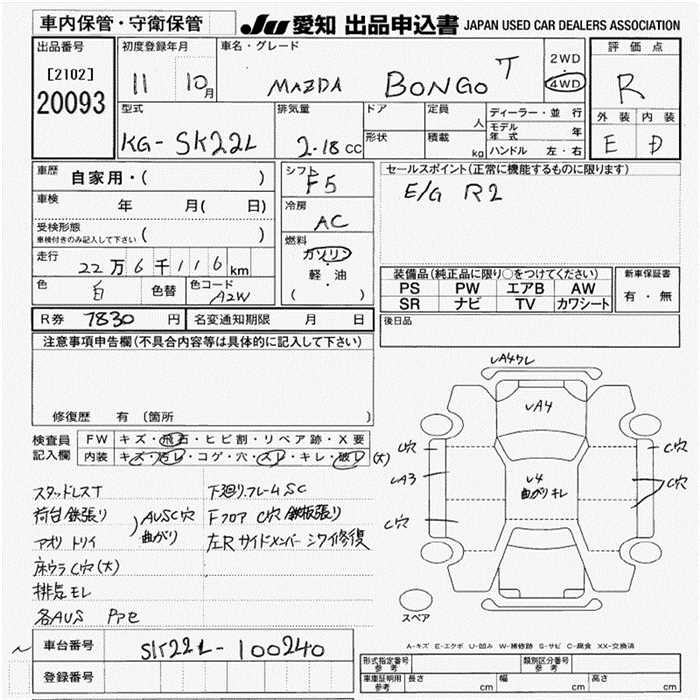 車内保管・守衛保管
JU 愛知 出品申込書 JAPAN USED CAR DEALERS ASSOCIATION
出品番号
[2102]
20093
初度登録年月
11 10月
車名・グレード
MAZDA BONGO T
2WD
4WD
評価点
R
外装 内装
E D
型式
KG-SK22L
排気量
2.18cc
ドア
形状
定員
人
積載
kg
ディーラー・並行
モデル年式 年
ハンドル 左・右
車歴
自家用・( )
車検
年 月( 日)
受検形態
車検付きのみ記入して下さい ( )
走行
22万6千116km
色
白
色替
色コード
A2W
シフト
F5
冷房
AC
燃料
ガソリン
軽・油
( )
セールスポイント(正常に機能するものに限ります)
E/G R2
装備品(純正品に限り○をつけてください)
PS PW エアB AW
SR ナビ TV カワシート
新車保証書
有・無
R券 7830 円
名変通知期限 月 日
後日品
注意事項申告欄(不具合内容等は具体的に記入して下さい)
修復歴 有 (箇所 )
検査員記入欄
FW キズ・飛石・ヒビ割・リペア跡・X要
内装 キズ・汚レ・コゲ・穴・スレ・キレ・破レ (大)
スタッドレスT
荷台鉄張り
アオリ トリイ
AUSC穴
曲がり
床ウラC穴(大)
排気モレ
各AUS PPセ
下廻り.フレームSC
Fフロア C穴鉄板張り
左Rサイドメンバー シワイ修復
UA4ワレ
UA4
U4
曲がりキレ
C穴
UA3
C穴
C穴
C穴
スペア
A-キズ E-エクボ U-凹み W-補修跡 S-サビ C-腐食 XX-交換済
車台番号
SK22L-100240
登録番号
形式指定番号
参考
類別区分番号
参考
車庫証明用
参考
長さ cm
幅 cm
高さ cm